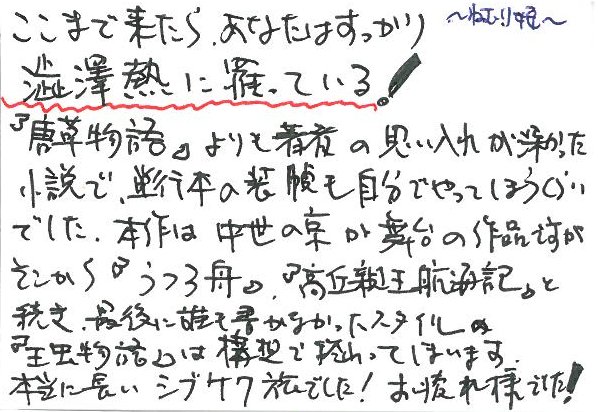 ここまで来たら、あなたはすっかり
～ねむり姫～
澁澤熱に罹っている！
『唐草物語』よりも著者の思い入れが深かった
小説で、単行本の装幀も自分でやってしまうくらい
でした。本作は中世の京が舞台の作品ですが
そこから『うつろ舟』、『高丘親王航海記』と
続き、最後に誰も書かなかったスタイルの
『玉虫物語』は構想で終わってしまいます。
本当に長いシブサワ旅でした！お疲れ様でした！